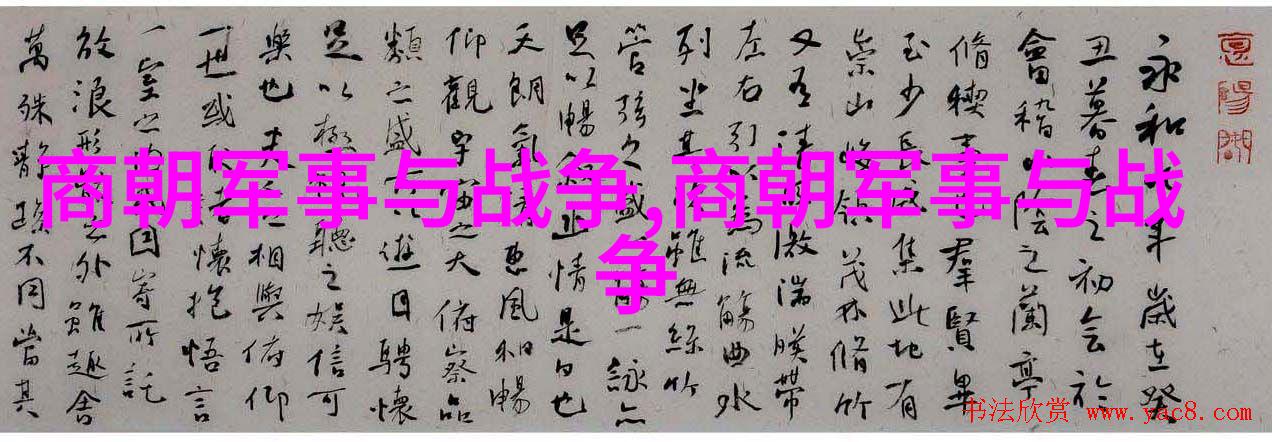 商朝军事与战争,商朝军事与战
争
永和九年歲在癸
丑暮春之初会於
會稽山陰之蘭亭
脩稧事羣賢畢
至少長咸集此地有
崇山峻領茂林脩竹
又有清流激湍暎帶
左右引以為流觴曲水
列坐其次雖無絲竹
管弦之盛一詠亦
足以暢情是日也
天朗氣清惠風和暢
仰觀宇宙之大俯察品
類之盛所以遊目騁懷
足以極聽之娱信可
樂也夫人之相與俯仰
一世或取諸懷抱悟言
一室之内因寄所託
放浪形之外雖趣舍
萬殊靜躁不同當其
书法欣赏 www.yac8.com